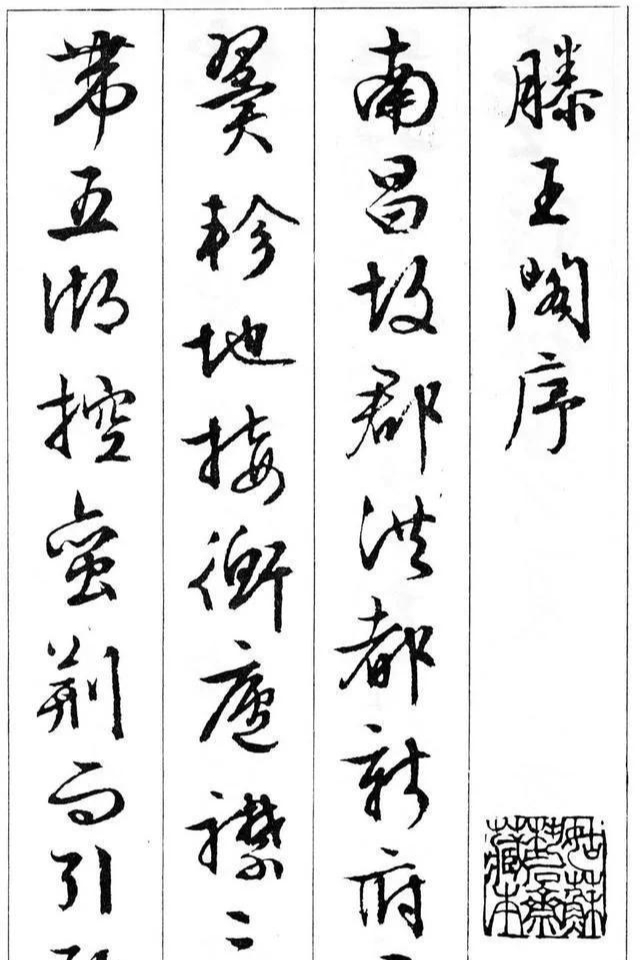 滕王閣序
南昌故郡洪都新府
翼軫地接衡廬襟
帶五湖控蛮荊而引
姑蘇
齋
藏本